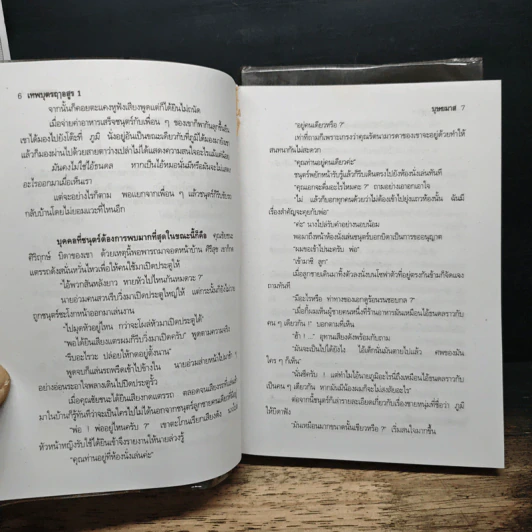 6 เทพบุตรฤาษูร 1
จากนั้นก็คอยตะแคงหูฟังเสียงพูดแต่ก็ได้ยินไม่ถนัด
เมื่อจ่ายค่าอาหารเสร็จชนุตร์กับเพื่อน ๆ ของเขาก็พากันลุกขึ้นยืน
เขาได้มองไปยังโต๊ะที่ ภูมิ นั่งอยู่อันเป็นขณะเดียวกับที่ภูมิได้มองมายังเขา
แล้วก็มองผ่านไปด้วยสายตาว่างเปล่าไม่ได้แสดงความสนใจอะไรแม้แต่น้อย
มันคงไม่ใช่ไอ้ธนดล หากเป็นไอ้หมอนั่นมีหรือมันจะไม่แสดง
อะไรออกมาเมื่อเห็นเรา
แต่จะอย่างไรก็ตาม พอแยกจากเพื่อน ๆ แล้วชนุตร์ก็รีบขับรถ
กลับบ้านโดยไม่ยอมแวะที่ไหนอีก
บุคคลที่ชนุตร์ต้องการพบมากที่สุดในขณะนี้ก็คือ คุณชัยชนะ
ศิริฤกษ์ บิดาของเขา ด้วยเหตุนี้พอพารถมาจอดหน้าบ้าน ศิริสุข เขาก็กด
แตรรถดังสนั่นหวั่นไหวเพื่อให้คนใช้มาเปิดประตูให้
"ไอ้พวกสันหลังยาว หายหัวไปไหนกันหมดวะ ?"
นายอ่วมคนสวนรีบวิ่งมาเปิดประตูใหญ่ให้ แต่กระนั้นก็ยังไม่วาย
ถูกชนุตร์ชะโงกหน้าออกมาเล่นงาน
"ไปมุดหัวอยู่ไหน กว่าจะโผล่หัวมาเปิดประตูได้"
"พอได้ยินเสียงแตรผมก็รีบวิ่งมาเปิดครับ" พูดตามความจริง
"รีบอะไรวะ ปล่อยให้กดอยู่ตั้งนาน"
พูดจบก็แล่นรถพรืดเข้าไปข้างใน นายอ่วมส่ายหน้าไปมาช้า ๆ
อย่างอ่อนระอาใจพลางเดินไปปิดประตูรั้ว
เมื่อคุณชัยชนะได้ยินเสียงกดแตรรถ ตลอดจนเสียงรถที่แล่นเข้า
มาในบ้านก็รู้ทันทีว่าจะเป็นใครไปไม่ได้นอกจากชนุตร์ลูกชายคนเดียวที่มีอยู่
"พ่อ ! พ่ออยู่ไหนครับ ?" เขาตะโกนเรียกเสียงดัง
หัวหน้าหญิงรับใช้ได้ยินเข้าจึงรายงานให้นายล่วงรู้
"คุณท่านอยู่ที่ห้องนั่งเล่นค่ะ"
บุษยมาส 7
"อยู่คนเดียวหรือ ?"
เท่าที่ถามก็เพราะเกรงว่าคุณรัตนามารดาของเขาจะอยู่ด้วยทำให้
สนทนากันไม่สะดวก
"คุณท่านอยู่คนเดียวค่ะ"
ชนุตร์พยักหน้ารับรู้แล้วก็รีบเดินตรงไปยังห้องนั่งเล่นทันที
"คุณเอกจะดื่มอะไรไหมคะ ?" ถามอย่างเอาอกเอาใจ
"ไม่ แล้วก็บอกทุกคนด้วยว่าไม่ต้องเข้าไปยุ่งแถวห้องนั้น ฉันมี
เรื่องสำคัญจะคุยกับพ่อ"
"ค่ะ" นางไปล่รับคำอย่างนอบน้อม
พอมาถึงหน้าห้องนั่งเล่นชนุตร์บอกบิดาเป็นการขออนุญาต
"ผมขอเข้าไปนะครับ พ่อ"
"เข้ามาซี ลูก"
เมื่อลูกชายเดินมาทิ้งตัวลงนั่งบนโซฟาตัวที่อยู่ตรงกันข้ามก็จัดแจง
ถามทันที
"มีอะไรหรือ ท่าทางของเอกดูร้อนรนชอบกล ?"
"เมื่อกี้ผมเห็นผู้ชายคนหนึ่งที่ร้านอาหารมันเหมือนไอ้ธนดลราวกับ
คน ๆ เดียวกัน !" บอกตามที่เห็น
"ฮ้า ! ..." อุทานเสียงดังพร้อมกับถาม
"มันจะเป็นไปได้ยังไง ไอ้เด็กนั่นมันตายไปแล้ว ศพของมัน
ใคร ๆ ก็เห็น"
"นั่นซีครับ ! แต่ทำไมไอ้นายภูมิอะไรนี่ถึงเหมือนไอ้ธนดลราวกับ
เป็นคน ๆ เดียวกัน หากมันมีน้องผมก็จะไม่สงสัยอะไร"
ต่อจากนี้ชนุตร์ก็เล่ารายละเอียดเกี่ยวกับเรื่องชายหนุ่มที่ชื่อว่า ภูมิ
ให้บิดาฟัง
"มันเหมือนมากขนาดนั้นเชียวหรือ ?" เริ่มสนใจมากขึ้น